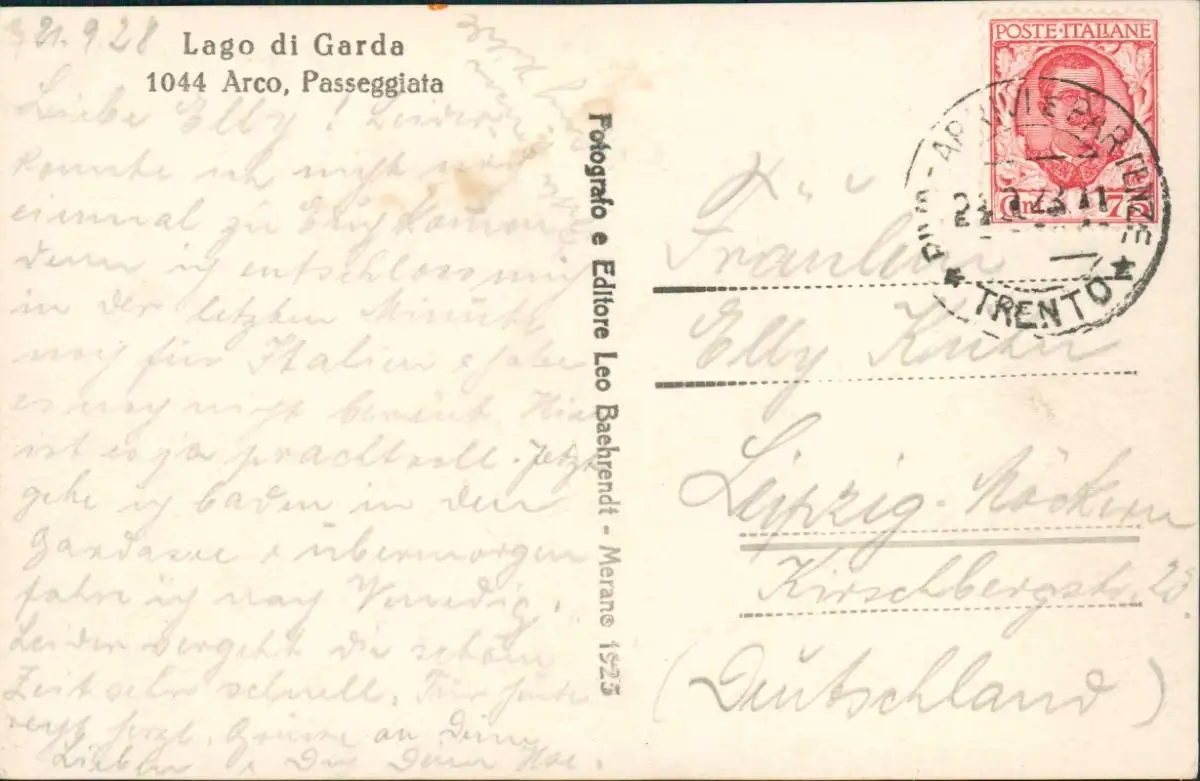 21.9.28
Lago di Garda
1044 Arco, Passeggiata
Liebe Elly! Leider
konnte ich nicht noch
einmal zu Euch kommen
denn ich entschloss mich
in der letzten Minute
noch für Italien & habe
es noch nicht bereut. Hier
ist es ja prachtvoll. Jetzt
gehe ich baden in den
Gardasee & übermorgen
fahre ich nach Venedig.
Leider vergeht die schöne
Zeit sehr schnell. Für heute
recht herzl. Grüsse an Deine
Lieben & Dich Dein
Fotografo e Editore Leo Baehrendt - Merano 1925
POSTE·ITALIANE
75
ARRIVI E PARTENZE
★ TRENTO ★
Fräulein
Elly
Leipzig-Möckern
Kirschbergstr. 23.
(Deutschland)